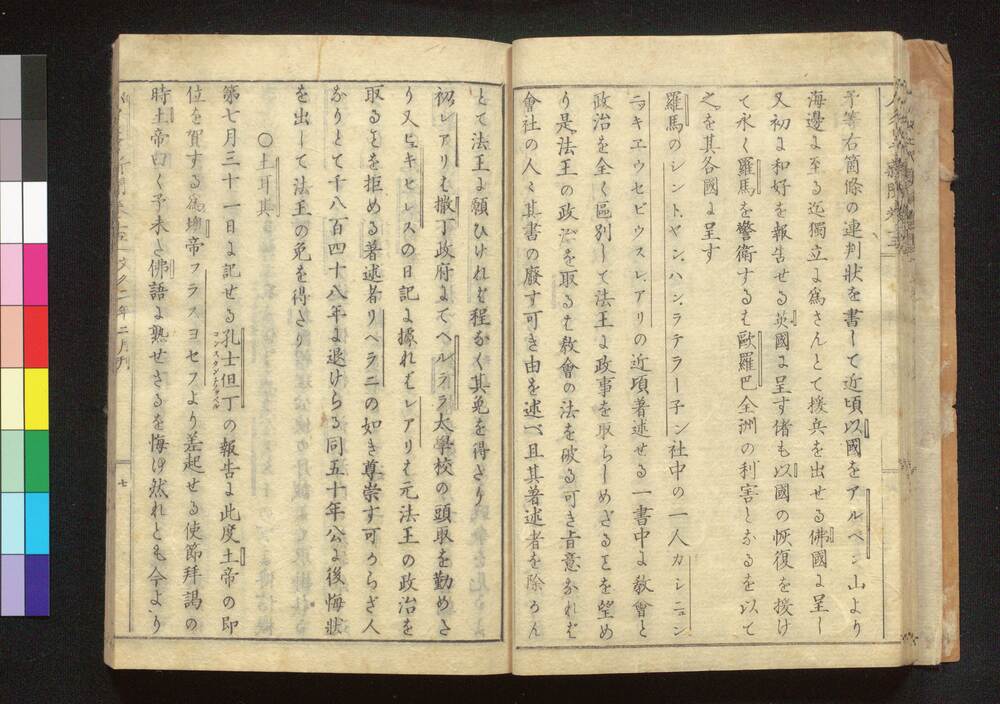 予等右箇條の連判狀を書して近頃以國をアルペン山より
海邊よ至る迄獨立よ爲さんとて援兵を出せる佛國よ呈し
又初よ和好を報告せる英國よ呈す偖も以國の恢復を援け
て永く羅馬を警衛するも歐羅巴全洲の利害となるを以て
之を其各國よ呈す
羅馬のシントヤンハンラテラー子ン社中の一人カシニュン
ニッキエウセビウスレアリの近頃著述せる一書中よ敎會と
政治を全く區別して法王よ政事を取らしめざることを望め
り是法王の政を取るも敎會の法を破る可き旨意なれバ
會社の人々其書の廢す可き由を述べ且其著述者を除かん
とて法王よ願ひけれバ程なく其免を得さり
初レアリも撒丁政府よてヘルララ大學校の頭取を勤めさ
り又ヒキセレスの日記よ據れバレアリも元法王の政治を
取ることを拒める著述者リヘラニの如き尊崇す可からざ人
なりとて千八百四十八年よ退けらる同五十年公よ後悔狀
を出して法王の免を得さり
〇土耳其
第七月三十一日よ記せる孔士但丁の報告よ此度土帝の即
コンスタンチノーペル
位を賀する爲墺帝フラスヨセフより差起せる使節拜謁の
時土帝曰く予未さ佛語よ熟せさるを悔ゆ然れとも今より
七